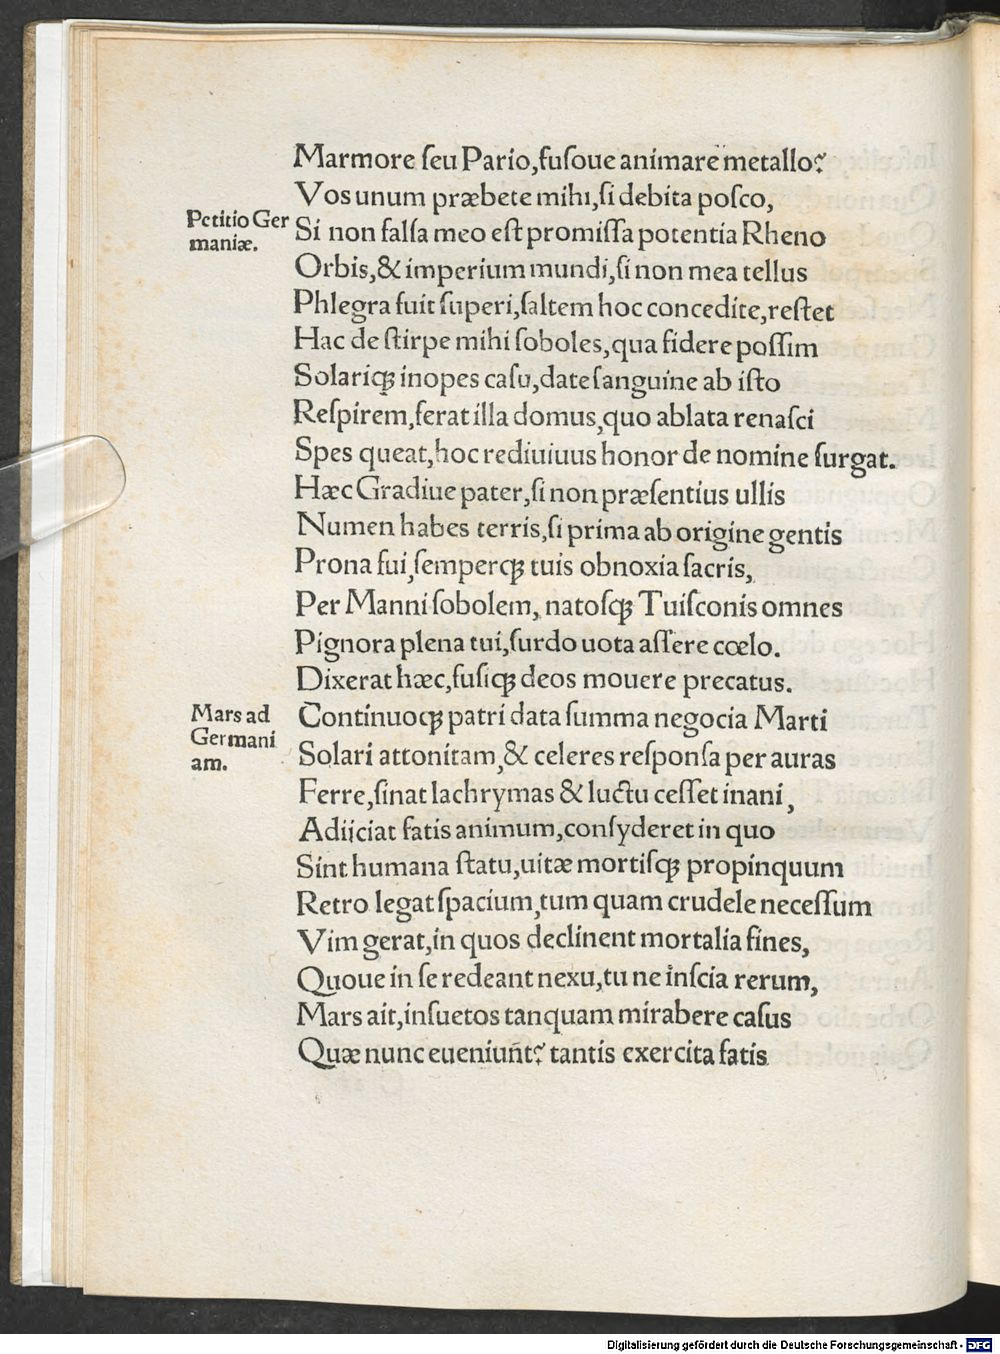 Marmore ſeu Pario,fuſoue animare metallo?
Vos unum præbete mihi,ſi debita poſco,
Petitio Ger
maniæ.
Si non falſa meo eſt promiſſa potentia Rheno
Orbis,& imperium mundi,ſi non mea tellus
Phlegra fuit ſuperi,ſaltem hoc concedite,reſtet
Hac de ſtirpe mihi ſoboles,qua fidere poſſim
Solariqꝫ inopes caſu,date ſanguine ab iſto
Reſpirem,ferat illa domus,quo ablata renaſci
Spes queat,hoc rediuiuus honor de nomine ſurgat.
Hæc Gradiue pater,ſi non præſentius ullis
Numen habes terris,ſi prima ab origine gentis
Prona fui,ſemperqꝫ tuis obnoxia ſacris,
Per Manni ſobolem, natoſqꝫ Tuiſconis omnes
Pignora plena tui,ſurdo uota aſſere cœlo.
Dixerat hæc,fuſiqꝫ deos mouere precatus.
Mars ad
Germani
am.
Continuoqꝫ patri data ſumma negocia Marti
Solari attonitam,& celeres reſponſa per auras
Ferre,ſinat lachrymas & luctu ceſſet inani,
Adijciat fatis animum,conſyderet in quo
Sint humana ſtatu,uitæ mortiſqꝫ propinquum
Retro legat ſpacium,tum quam crudele neceſſum
Vim gerat,in quos declinent mortalia fines,
Quoue in ſe redeant nexu,tu ne inſcia rerum,
Mars ait,inſuetos tanquam mirabere caſus
Quæ nunc eueniunt? tantis exercita fatis
Digitalisierung gefördert durch die Deutsche Forschungsgemeinschaft - DFG